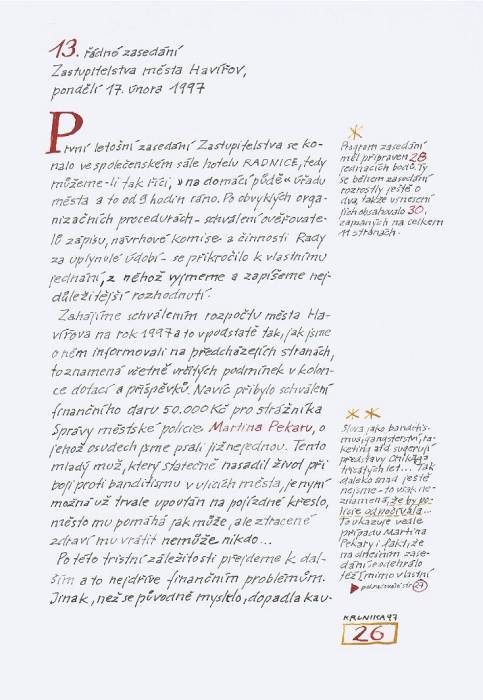 13. řádné zasedání
Zastupitelstva města Havířov,
pondělí 17. února 1997
První letošní zasedání Zastupitelstva se ko-
nalo ve společenském sále hotelu RADNICE, tedy
můžeme-li tak říci, »na domácí půdě« úřadu
města a to od 9 hodin ráno. Po obvyklých orga-
nizačních procedurách - schválení ověřovate-
lů zápisu, návrhové komise a činnosti Rady
za uplynulé údobí - se přikročilo k vlastnímu
jednání, z něhož vyjmeme a zapíšeme nej-
důležitější rozhodnutí.
Zahájíme schválením rozpočtu města Ha-
vířova na rok 1997 a to v podstatě tak, jak jsme
o něm informovali na předcházejících stranách,
to znamená včetně určitých podmínek v kolon-
ce dotací a příspěvků. Navíc přibylo schválení
finančního daru 50.000 Kč pro strážníka
Správy městské policie Martina Pekaru, o
jehož osudech jsme psali již nejednou. Tento
mladý muž, který statečně nasadil život při
boji proti banditismu v ulicích města, je nyní
možná už trvale upoután na pojízdné křeslo,
město mu pomáhá jak může, ale ztracené
zdraví mu vrátit nemůže nikdo...
Po této tristní záležitosti přejdeme k dal-
ším a to nejdříve finančním problémům.
Jinak, než se původně myslelo, dopadla kau-
*
Program zasedání
měl připraven 28
jednacích bodů. Ty
se během zasedání
rozrostly ještě o
dva, takže usnesení
jich obsahovalo 30,
zapsaných na celkem
11 stranách.
**
Slova jako banditis-
mus, gangsterství, ra-
keting atd sugerují
představy Chikaga
třicátých let... Tak
daleko snad ještě
nejsme - to však ne-
znamená, že by po-
licie odpočívala...
To ukazuje vedle
případu Martina
Pekary i fakt, že
na dnešním zase-
dání se odehrálo
též i mimo vlastní
pokračování str. 27
KRONIKA 97
26